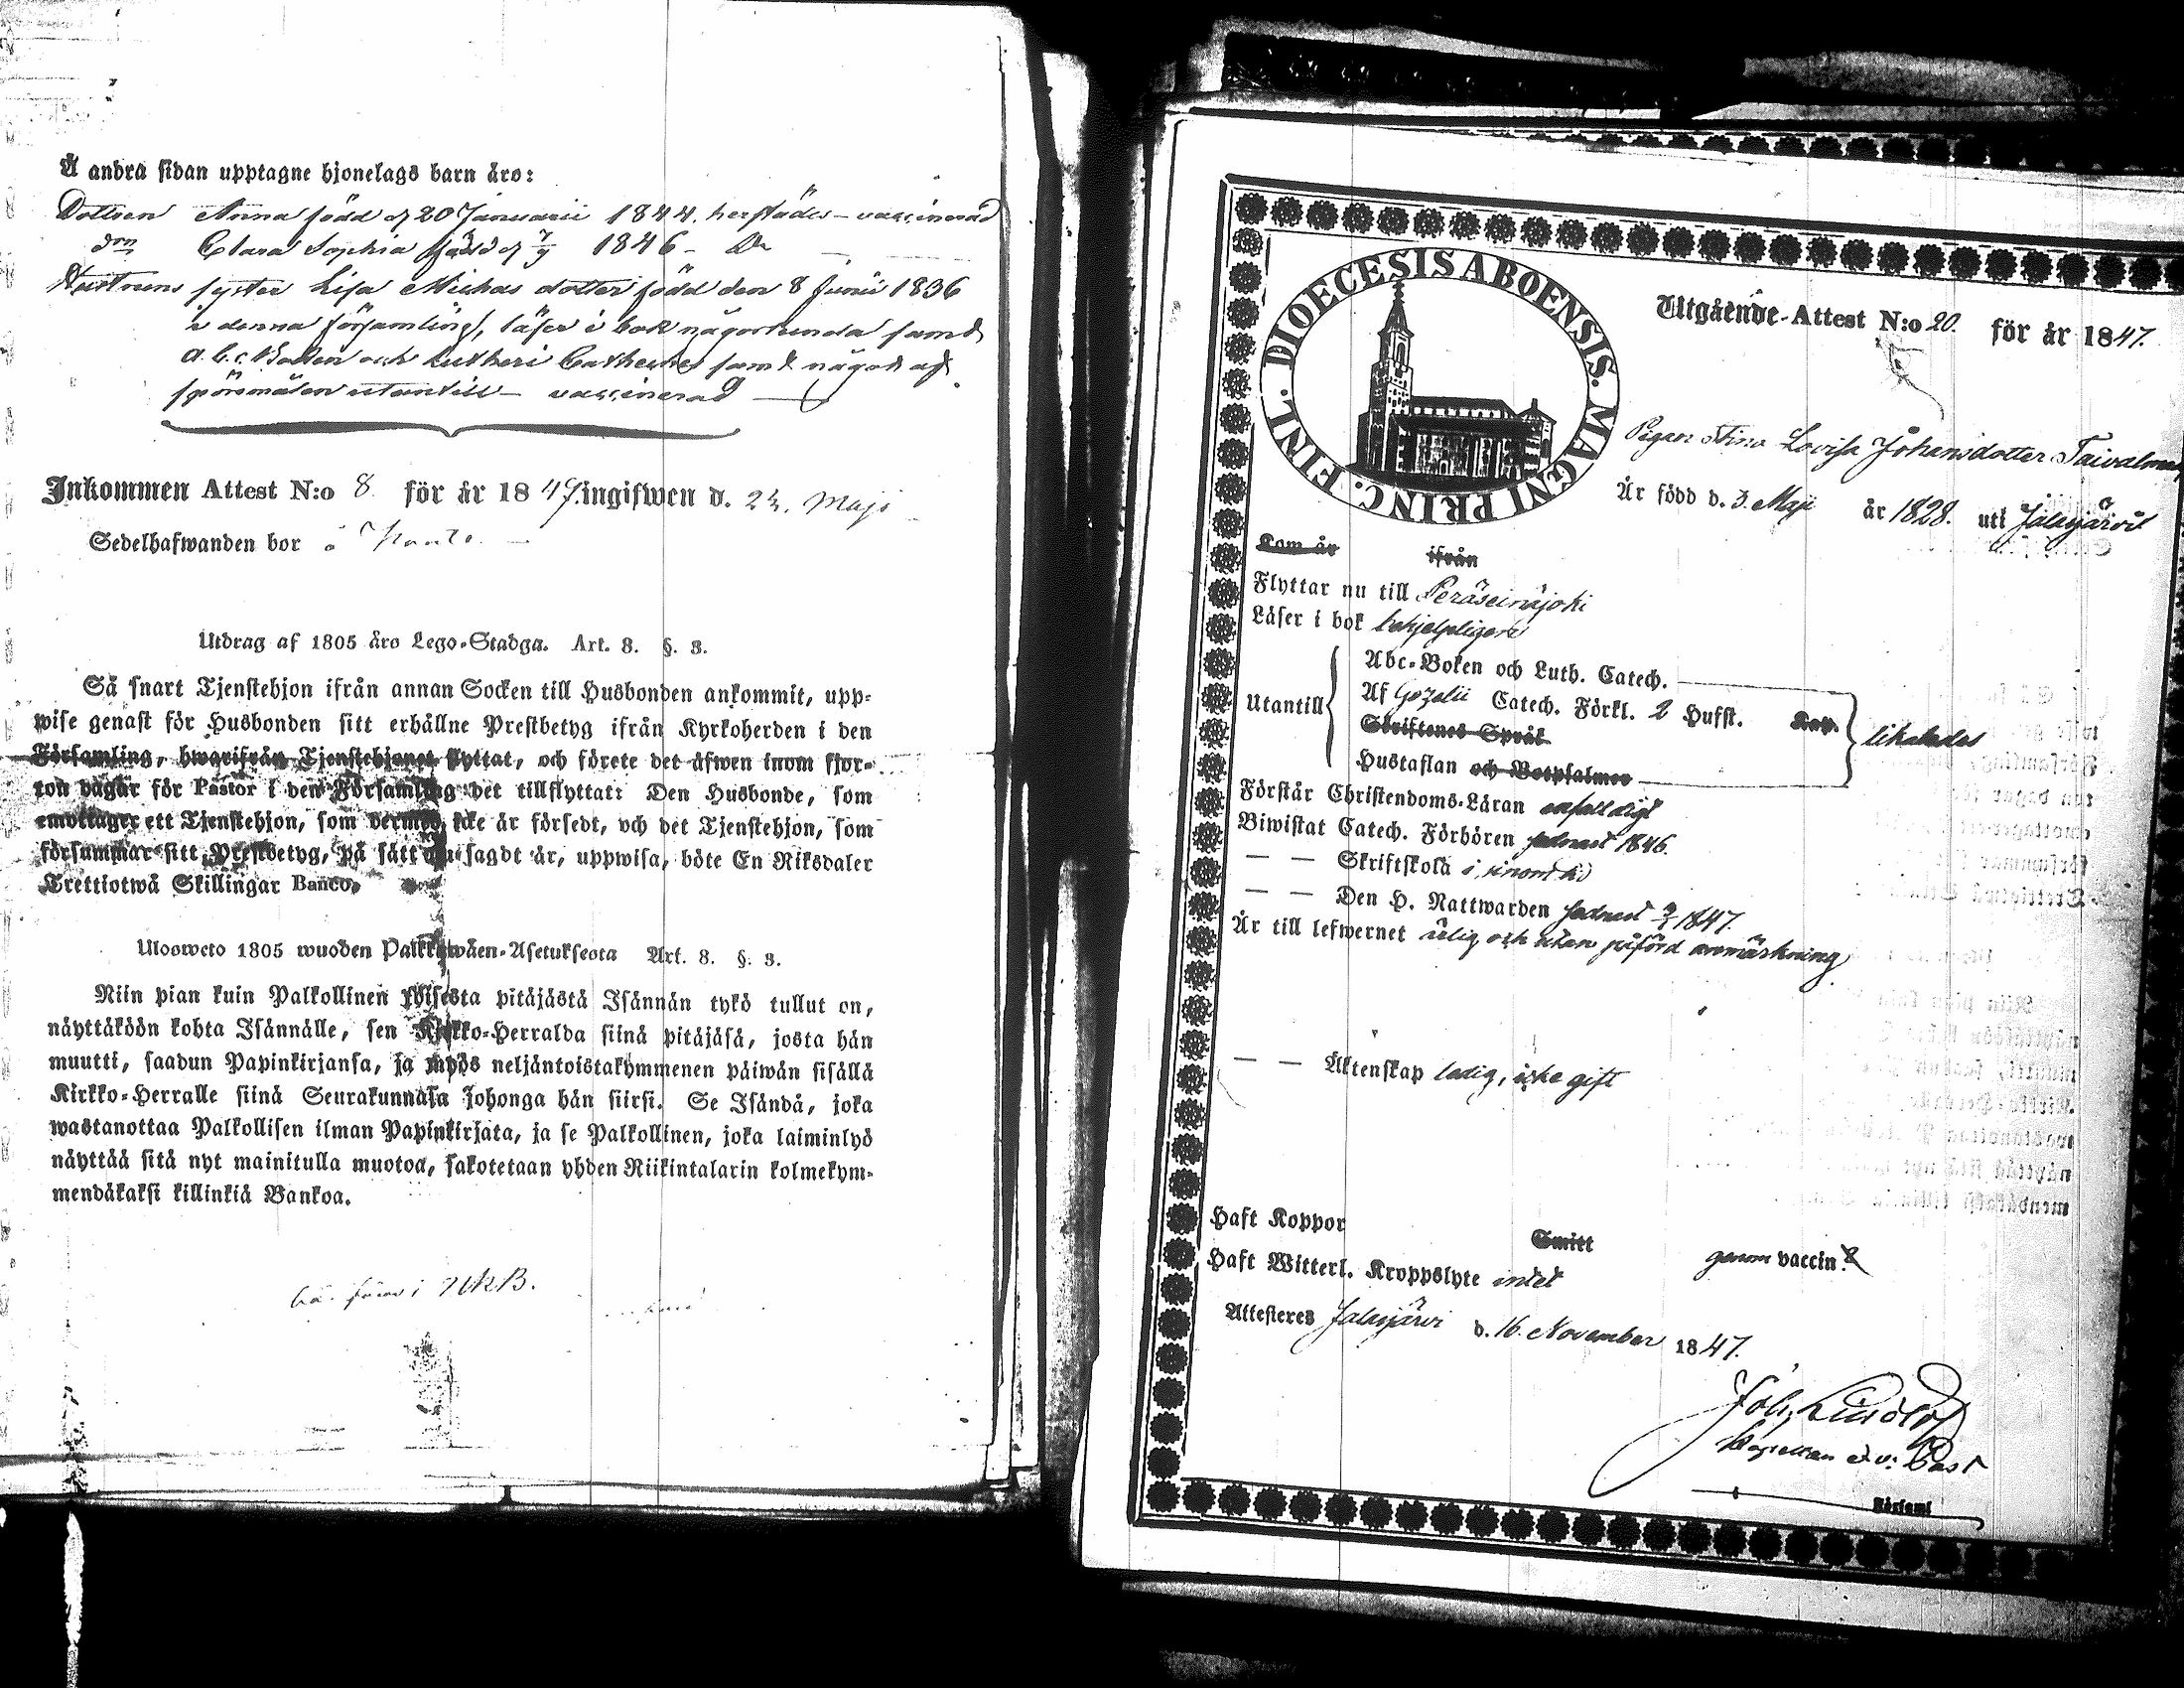 Å andra sidan upptagne hjonelags barn äro:
Dottren Anna född d 20 Januarii 1844. herstädes – vaccinerad
drn Clara Sophia född d 7/9 1846 – Do
Hustruns syster Lisa Michas dotter född den 8 Junii 1836
i denna församling, läser i bok någorlunda samt
a.b.c. Boken och Lutheri Cathechес samt något af
spörsmålen utantill – vaccinerad
Inkommen Attest N:o 8 för år 1847. ingifwen d. 24. Maji
Sedelhafwanden bor
Utdrag af 1805 års Lego-Stadga. Art. 8. §. 3.
Så snart Tjenstehjon ifrån annan Socken till Husbonden ankommit, upp-
wise genast för Husbonden sitt erhållne Prestbetyg ifrån Kyrkoherden i den
Församling, hwarifrån Tjenstehjonet flyttat, och förete det äfwen inom fjor-
ton dagar för Pastor i den Församling det tillflyttat: Den Husbonde, som
emottager ett Tjenstehjon, som dermed icke är försedt, och det Tjenstehjon, som
försummar sitt Prestbetyg, på sätt nu sagdt är, uppwisa, böte En Riksdaler
Trettiotwå Skillingar Banco.
Uloswеto 1805 wuoden Palkkawäen-Asetuksesta Art. 8. §. 3.
Niin pian kuin Palkollinen yhisestä pitäjästä Isännän tykö tullut on,
näyttäköön kohta Isännälle, sen Kirkko-Herralda siinä pitäjäsä, josta hän
muutti, saadun Papinkirjansa, ja myös neljäntoistakymmenen päiwän sisällä
Kirkko-Herralle siinä Seurakunnasa johonga hän siirsi. Se Isändä, joka
wastanottaa Palkollisen ilman Papinkirjata, ja se Palkollinen, joka laiminlyö
näyttää sitä nyt mainitulla muotoa, sakotetaan yhden Riikintalarin kolmekym-
mendäkaksi killinkiä Bankoa.
DIOECESIS ABOENSIS. MAGNI PRINC. FINL.
Utgående-Attest N:o 20. för år 1847.
Pigan Stina Lovisa Johansdotter
Är född d. 3. Maji år 1828. uti Jalasjärvi
Kom år ifrån
Flyttar nu till Peräseinäjoki
Läser i bok behjelpligen
Utantill
Abc-Boken och Luth. Catech.
Af Gezelii Catech. Förkl. 2 Hufst. Kap.
Skriftenes Språk
Hustaflan och Botpsalmer
likaledes
Förstår Christendoms-Läran enfaldigt
Biwistat Catech. Förhören sednast 1846.
— — Skriftskola
— — Den H. Nattwarden sednast 1847.
Är till lefwernet ärlig och utan påförd anmärkning
— — Äktenskap ledig, icke gift
Haft Koppor Smitt genom vaccin.
Haft Witterl. Kroppslyte intet
Attesteres Jalasjärvi d. 16. November 1847.
Församl